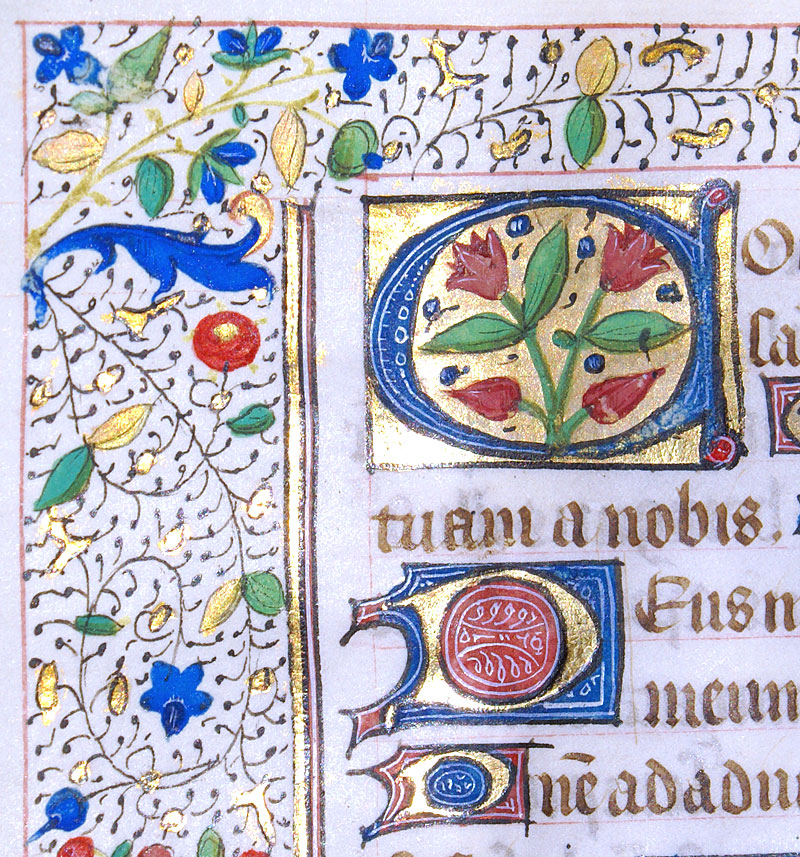 CO
sa
tuam a nobis.
DEus
meum
Dnē ad adiu